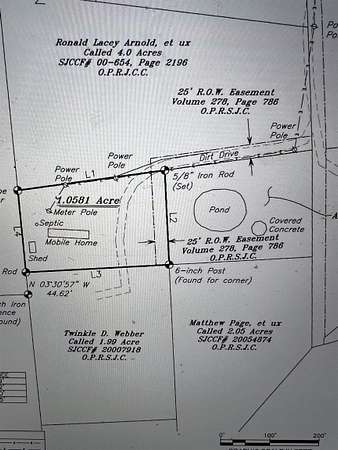 Ronald Lacey Arnold, et ux
Called 4.0 Acres
SJCCF# 00-654, Page 2196
O.P.R.J.C.C.
25' R.O.W. Easement
Volume 278, Page 786
O.P.R.S.J.C.
Power
Pole
Dirt Drive
Power
Pole
Power
Pole
L1
5/8" Iron Rod
(Set)
1.0581 Acre
Meter Pole
Septic
Mobile Home
Shed
L4
L2
L3
Pond
Covered
Concrete
25' R.O.W. Easement
Volume 278, Page 786
O.P.R.S.J.C.
Rod
6-inch Post
(Found for corner)
N 03°30'57" W
44.62'
Iron
Twinkle D. Webber
Called 1.99 Acre
SJCCF# 20007918
O.P.R.S.J.C.
Matthew Page, et ux
Called 2.05 Acres
SJCCF# 20054874
O.P.R.S.J.C.
0 100' 200'